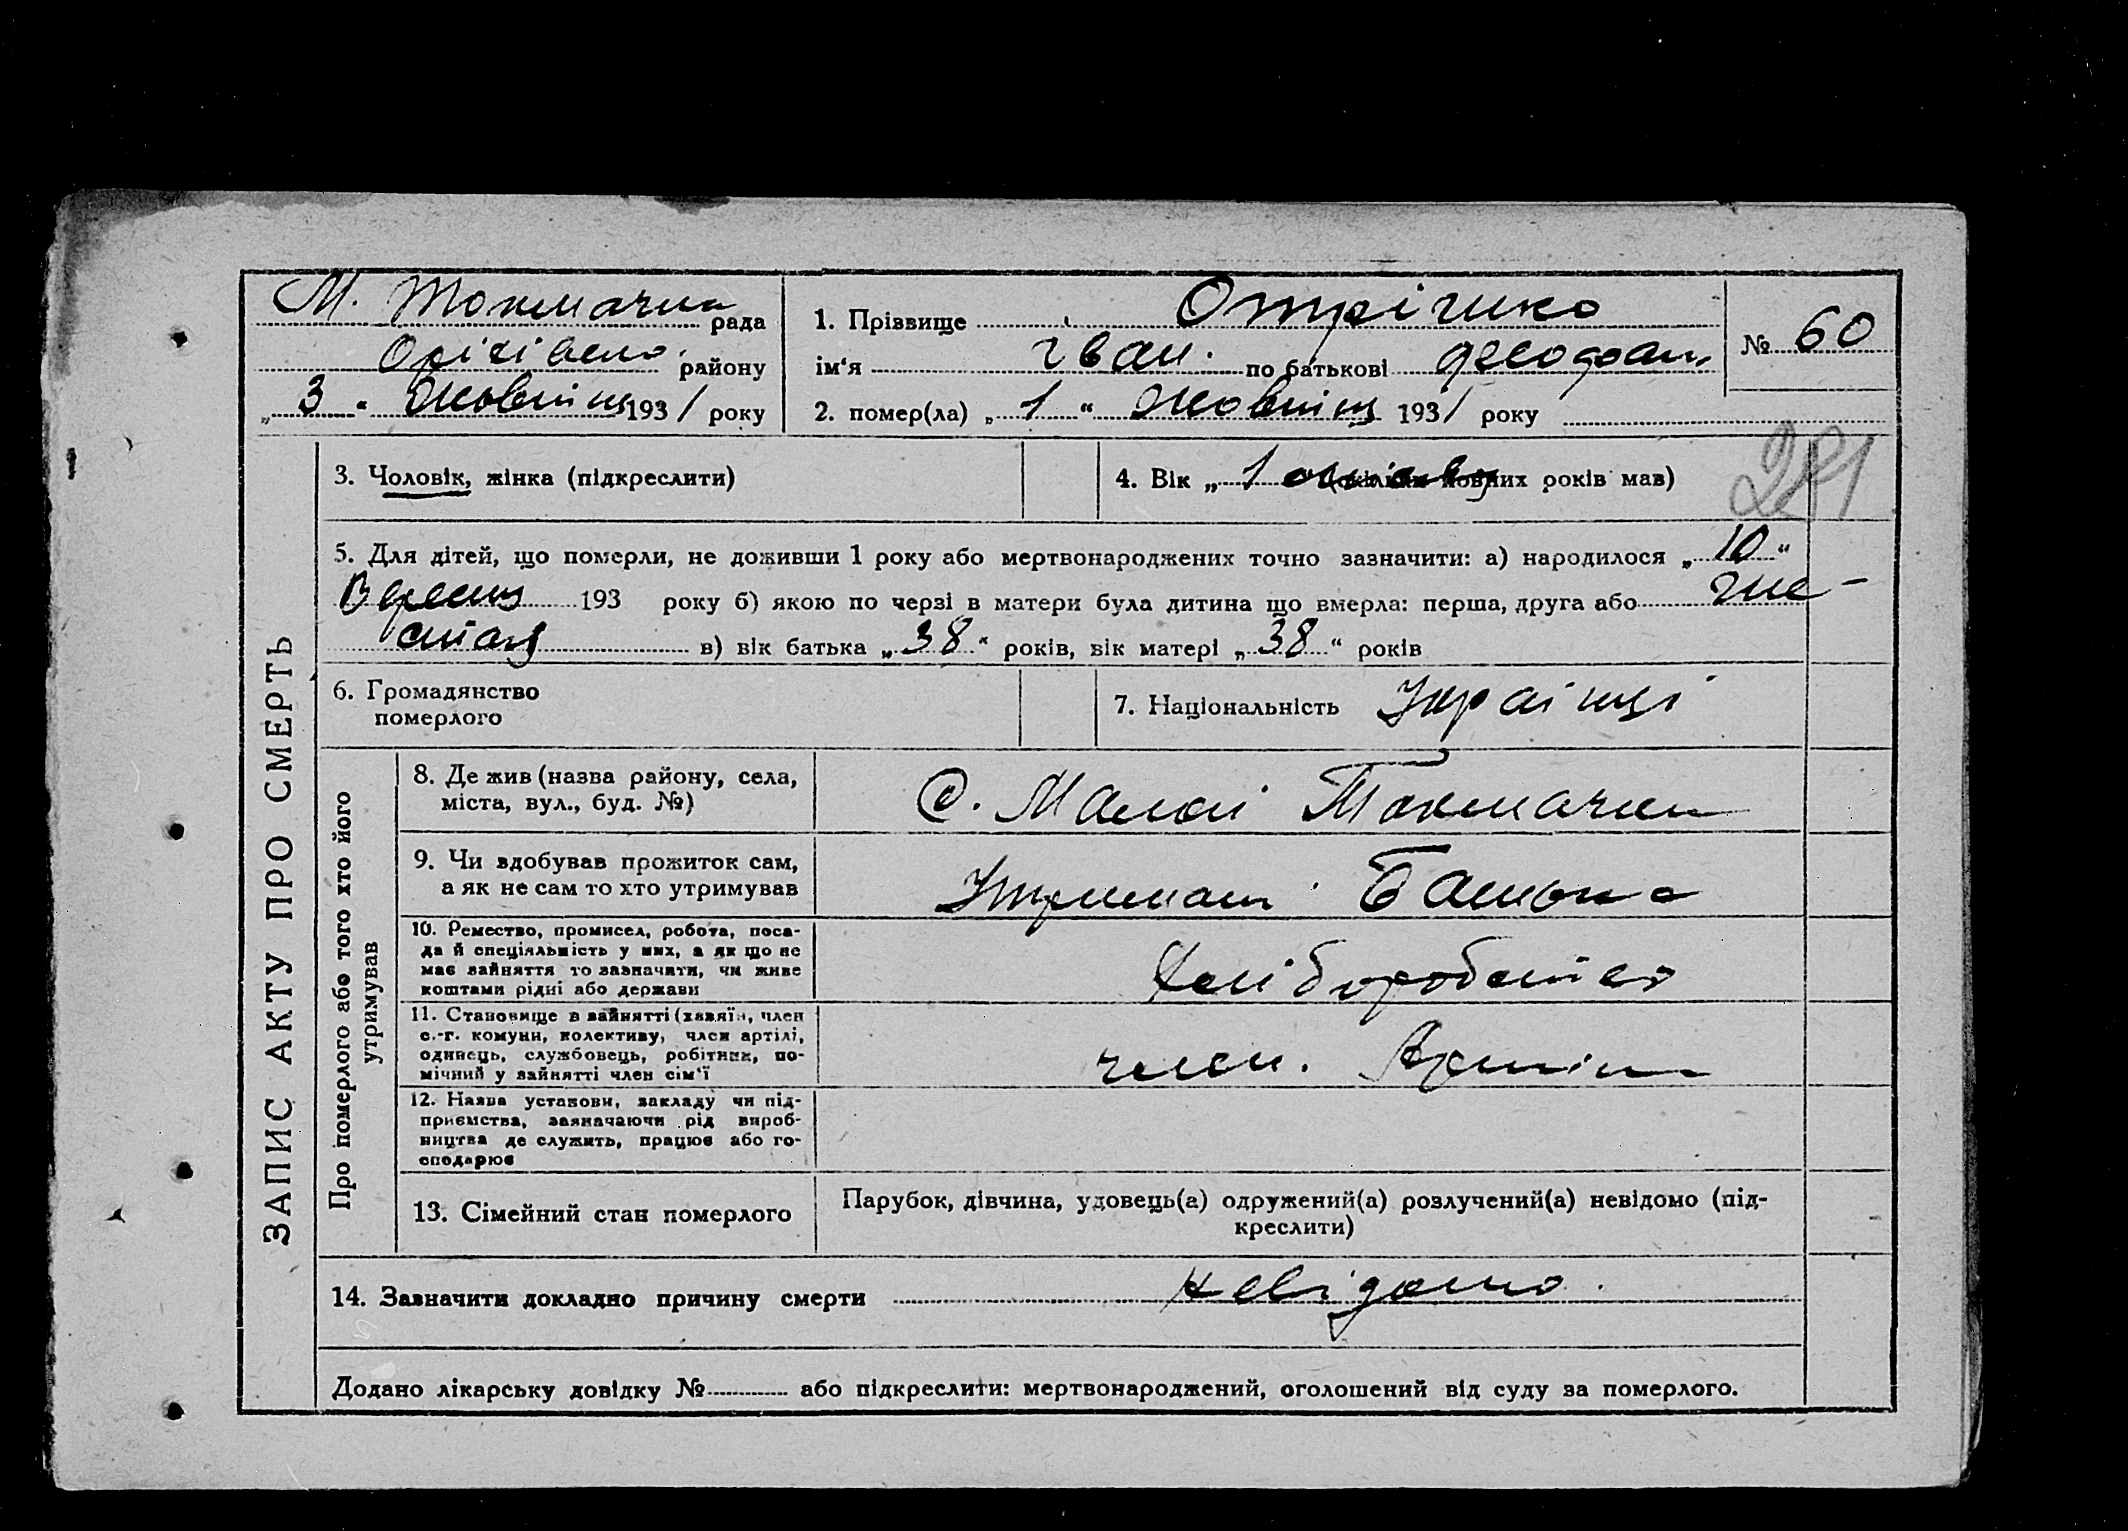 М. Токмачка рада
Оріхівсько. району
„ 3 " Жовтня 1931 року
1. Прізвище Отрішко
ім'я Іван. по батькові
2. помер(ла) „ 1 " Жовтня 1931 року
№ 60
281
ЗАПИС АКТУ ПРО СМЕРТЬ
3. Чоловік, жінка (підкреслити)
4. Вік „ 1 (скільки повних років мав)
5. Для дітей, що померли, не доживши 1 року або мертвонароджених точно зазначити: а) народилося „ 10 "
Вересня 193 року б) якою по черзі в матери була дитина що вмерла: перша, друга або ше-
стая в) вік батька „ 38 " років, вік матері „ 38 " років
6. Громадянство
померлого
7. Національність Українці
Про померлого або того хто його
утримував
8. Де жив (назва району, села,
міста, вул., буд. №)
С. Малой Токмачки
9. Чи здобував прожиток сам,
а як не сам то хто утримував
Батька
10. Ремество, промисел, робота, поса-
да й спеціяльність у них, а як що не
має зайняття то зазначити, чи живе
коштами рідні або держави
Хліборобство
11. Становище в зайнятті (хазяїн, член
с.-г. комуни, колективу, член артілі,
одинець, службовець, робітник, по-
мічний у зайнятті член сім'ї
член. Артіли
12. Назва установи, закладу чи під-
приємства, зазначаючи рід вироб-
ництва де служить, працює або го-
сподарює
13. Сімейний стан померлого
Парубок, дівчина, удовець(а) одружений(а) розлучений(а) невідомо (під-
креслити)
14. Зазначити докладно причину смерти невідомо.
Додано лікарську довідку № або підкреслити: мертвонароджений, оголошений від суду за померлого.